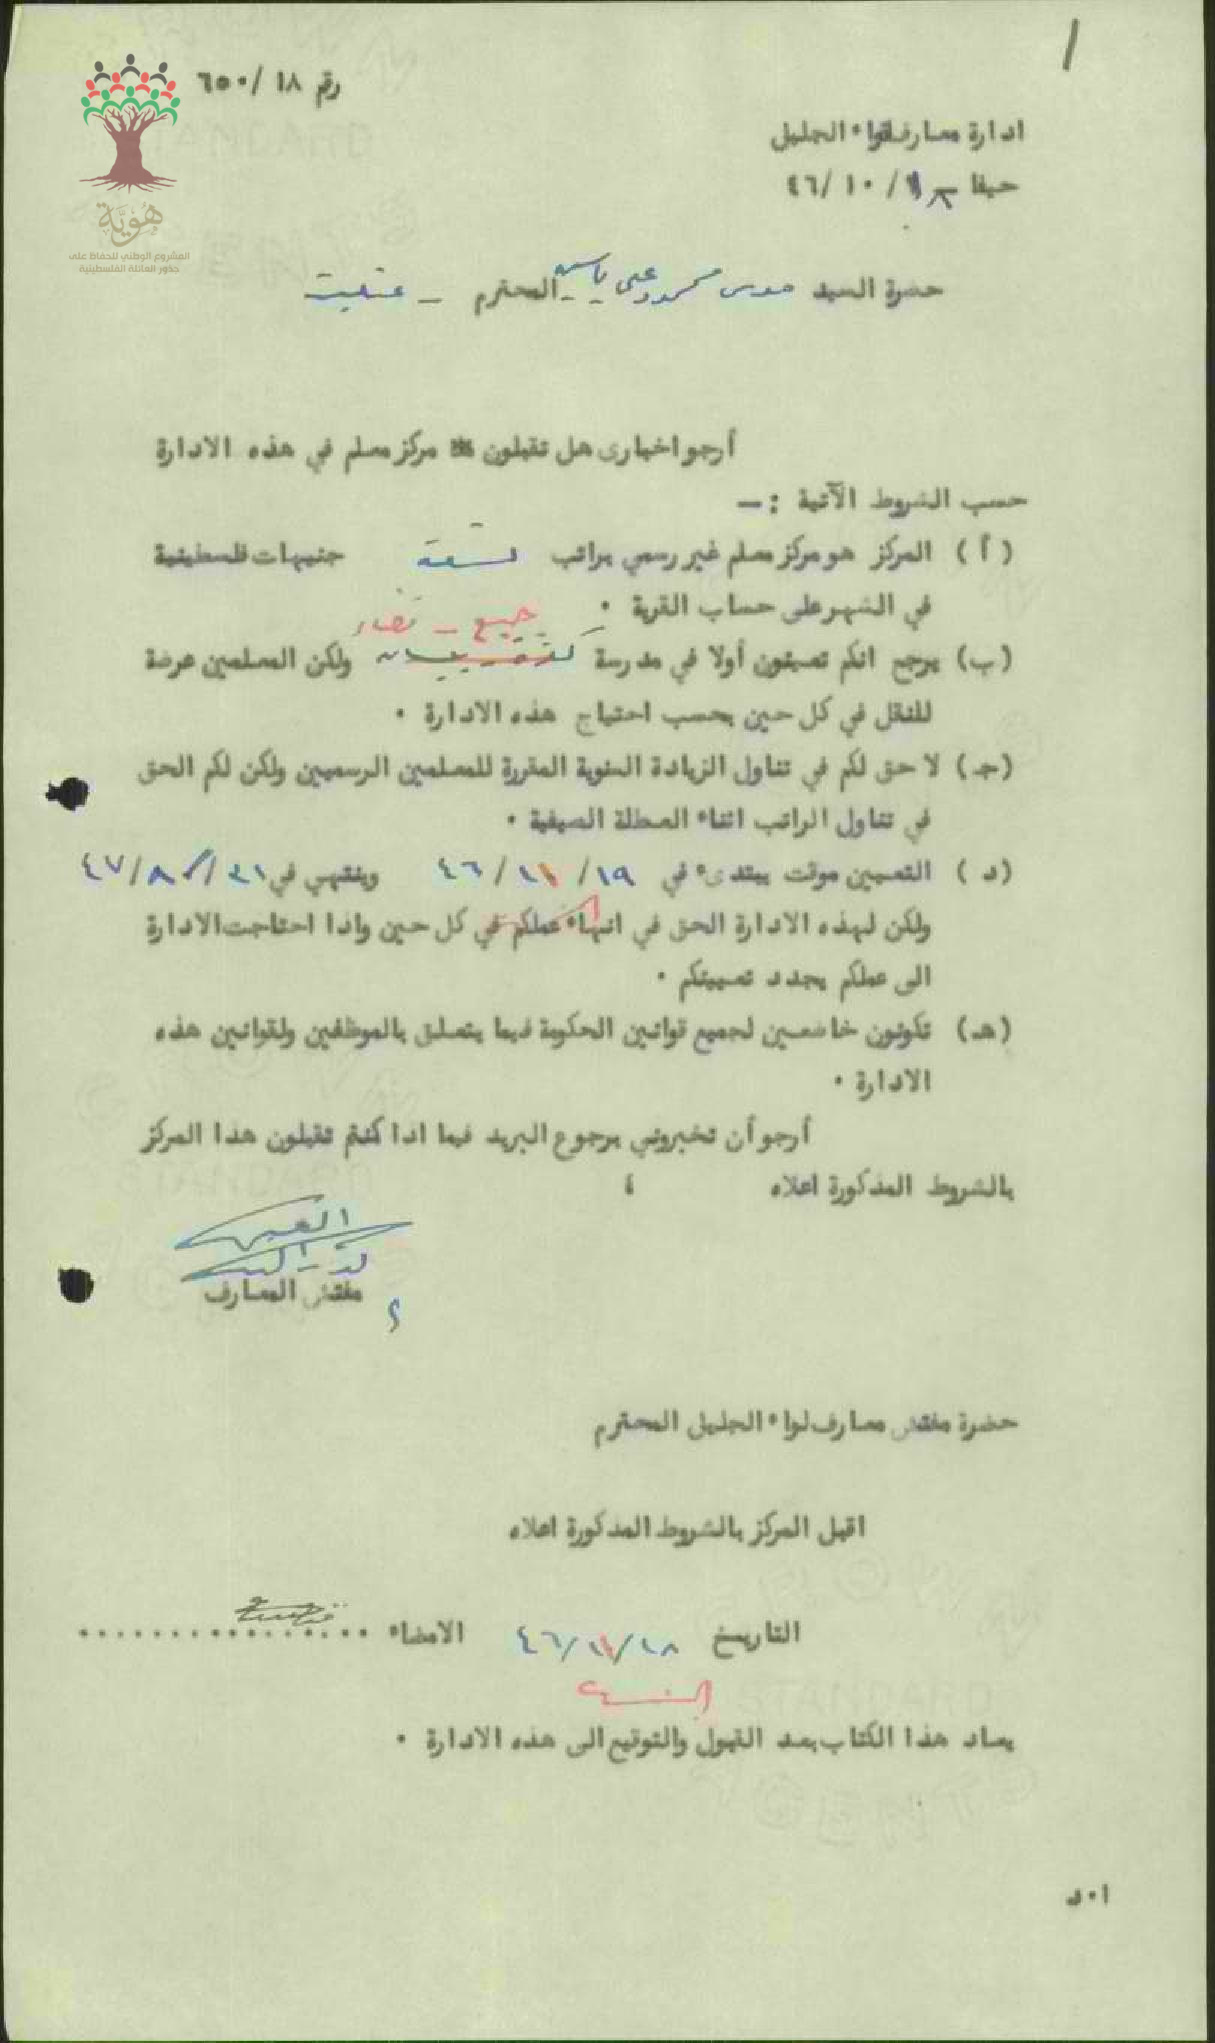 ١
رقم ١٨ / ٦٥٠
هُوِيَّة
المشروع الوطني للحفاظ على
جذور العائلة الفلسطينية
ادارة معارف لواء الجليل
حيفا / ١٠ /٤٦
حضرة السيد موسى محمود علي ياسين المحترم -
أرجو اخباري هل تقبلون مركز معلم في هذه الادارة
حسب الشروط الآتية : —
( أ ) المركز هو مركز معلم غير رسمي براتب تسعة جنيهات فلسطينية
في الشهر على حساب القرية ٠
جبع -
(ب) يرجح انكم تعينون أولا في مدرسة ولكن المعلمين عرضة
للنقل في كل حين بحسب احتياج هذه الادارة ٠
(جـ) لا حق لكم في تناول الزيادة السنوية المقررة للمعلمين الرسميين ولكن لكم الحق
في تناول الراتب اثناء العطلة الصيفية ٠
(د ) التعيين موقت يبتدىء في ١٩/ ١١/ ٤٦ وينتهي في ٣١/ ٨/ ٤٧
ولكن لهذه الادارة الحق في انهاء عملكم في كل حين واذا احتاجت الادارة
الى عملكم يجدد تعيينكم ٠
(هـ) تكونون خاضعين لجميع قوانين الحكومة فيما يتعلق بالموظفين ولقوانين هذه
الادارة ٠
أرجو أن تخبروني برجوع البريد فيما اذا كنتم تقبلون هذا المركز
بالشروط المذكورة اعلاه ،
مفتش المعارف
حضرة مفتش معارف لواء الجليل المحترم
اقبل المركز بالشروط المذكورة اعلاه
التاريخ ١٨/ ١١/ ٤٦ الامضاء ................
يعاد هذا الكتاب بعد القبول والتوقيع الى هذه الادارة ٠
ا٠د